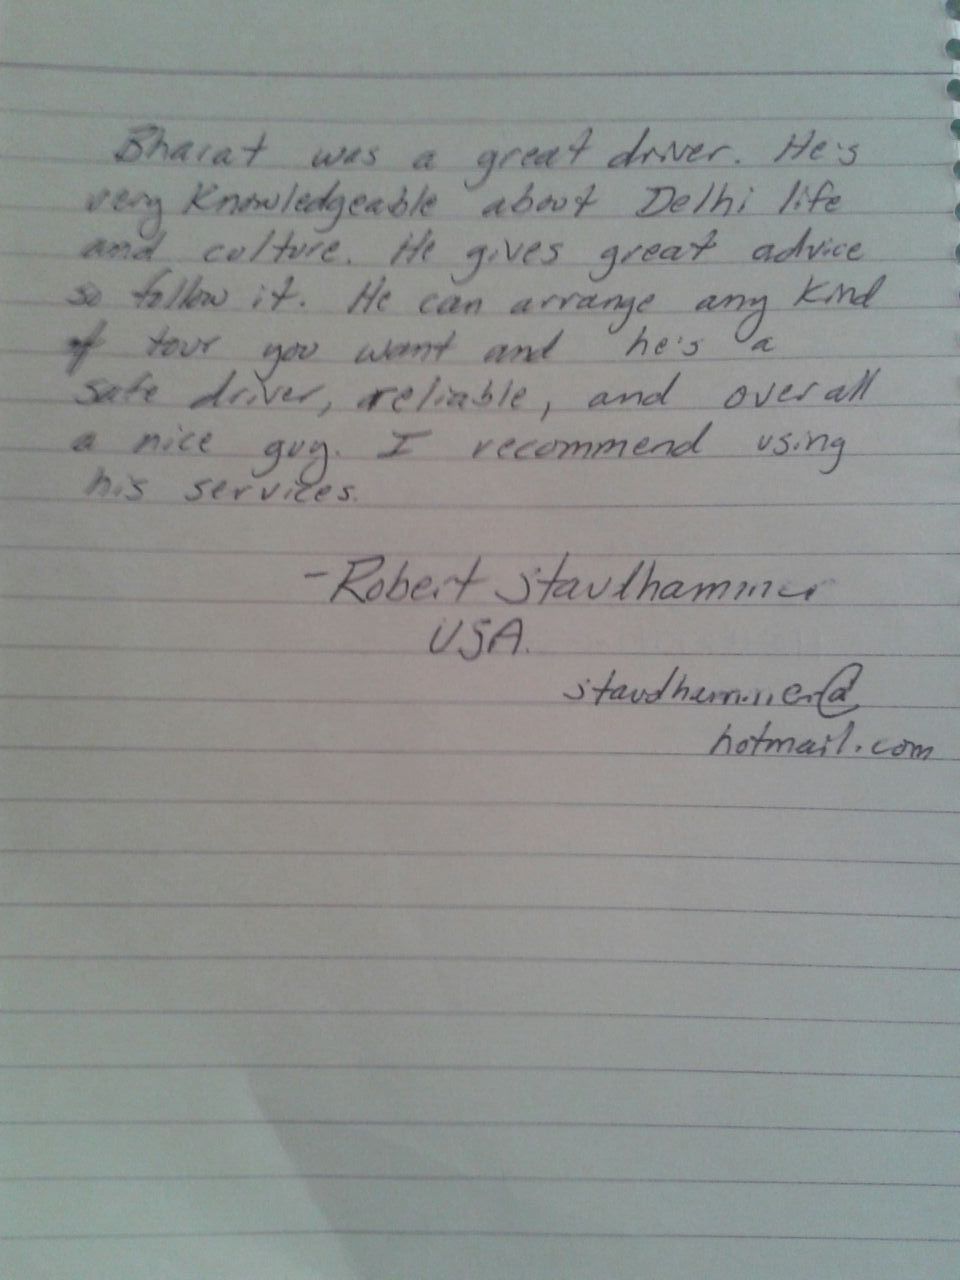 Bharat was a great driver. He's
very knowledgeable about Delhi life
and culture. He gives great advice
so follow it. He can arrange any kind
of tour you want and he's a
safe driver, reliable, and overall
a nice guy. I recommend using
his services.
- Robert Staudhammer
USA.
staudhammer@
hotmail.com